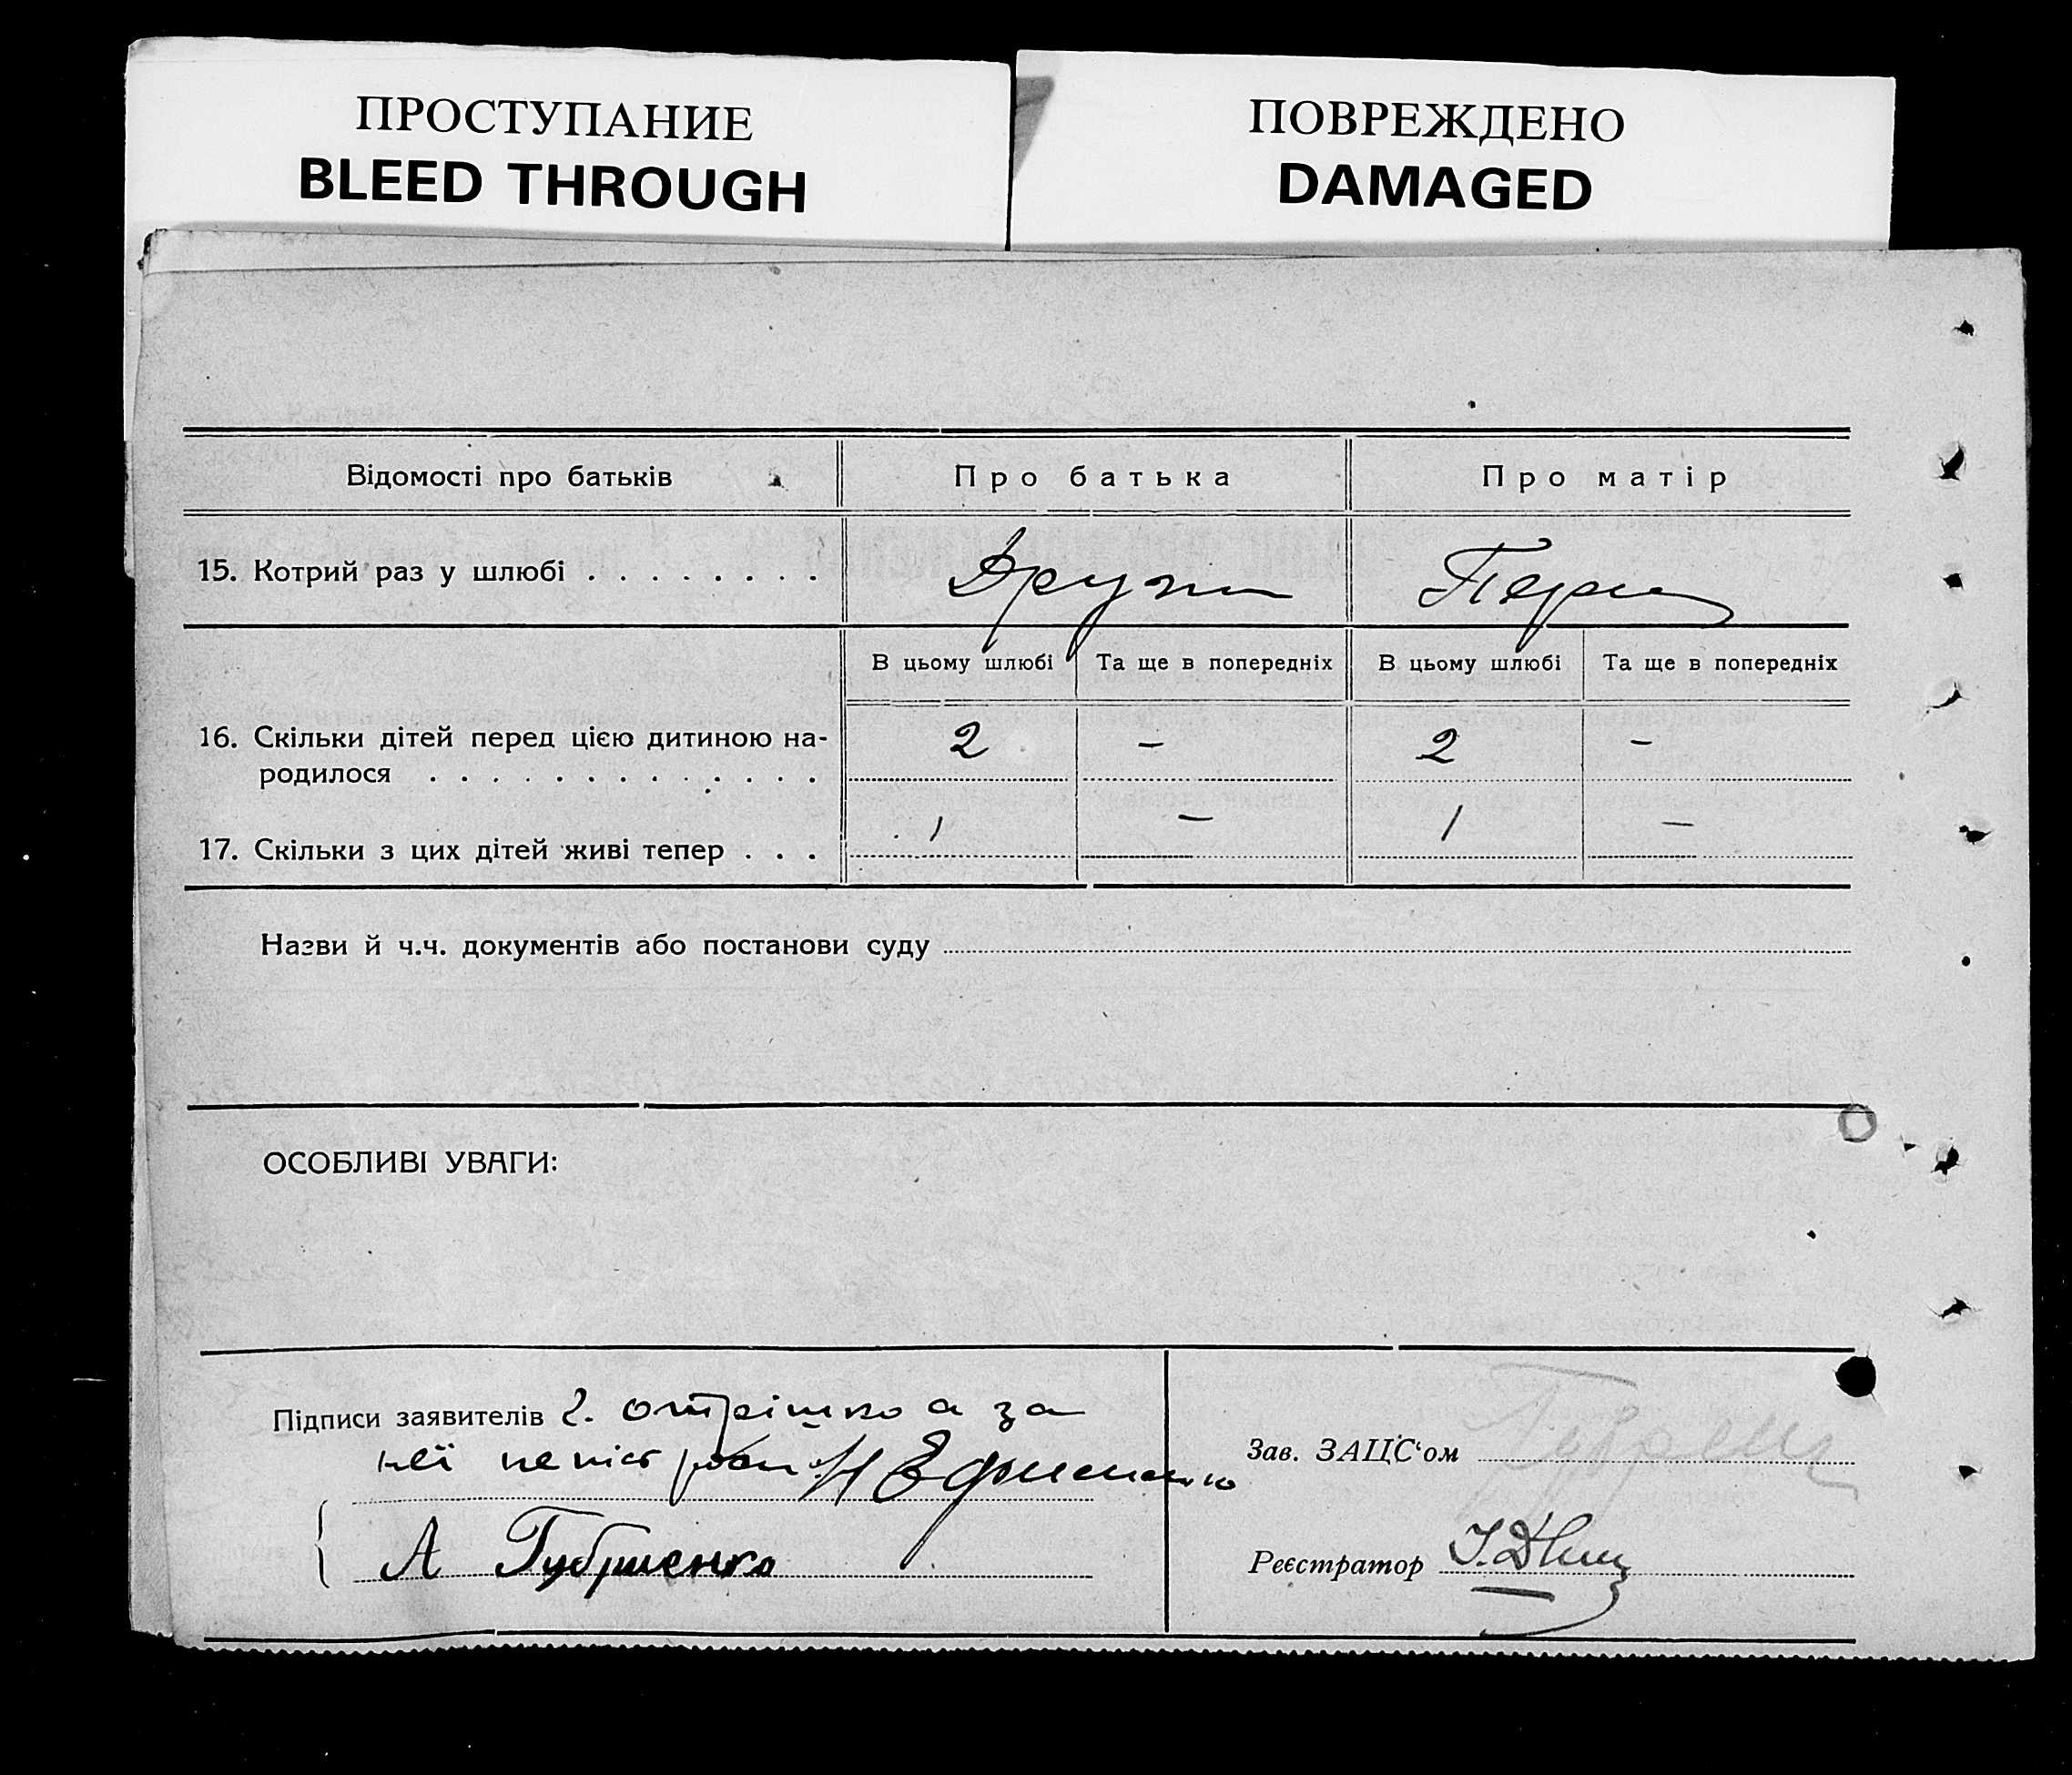 ПРОСТУПАНИЕ
BLEED THROUGH
ПОВРЕЖДЕНО
DAMAGED
Відомості про батьків
Про батька
Про матір
15. Котрий раз у шлюбі . . . . . . . .
В цьому шлюбі
Та ще в попередніх
В цьому шлюбі
Та ще в попередніх
16. Скільки дітей перед цією дитиною на-
родилося . . . . . . . . . . . . .
2
–
2
–
17. Скільки з цих дітей живі тепер . . .
1
–
1
–
Назви й ч.ч. документів або постанови суду
ОСОБЛИВІ УВАГИ:
Підписи заявителів а за
неї
Зав. ЗАЦС‘ом
А
Реєстратор